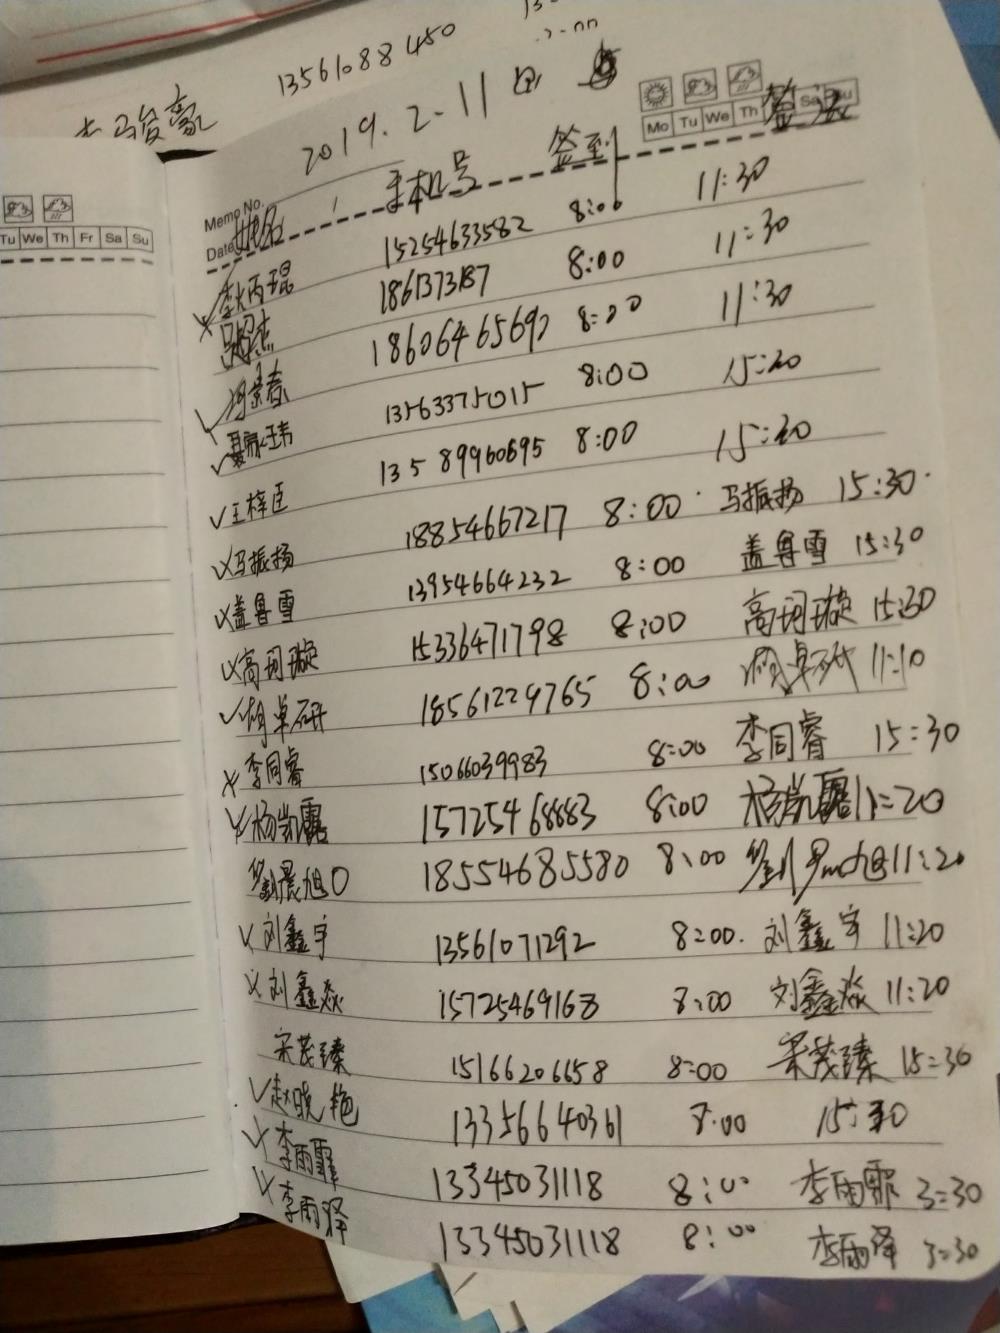 13561088450
2019.2.11
Mo Tu We Th Sa Su
Memo No.
Date 姓名 手机号 签到 签退
Tu We Th Fr Sa Su
李丙琨 15254633582 8:00 11:30
8:00 11:30
18606465690 8:00 11:30
13563375015 8:00 15:30
王梓臣 13589960695 8:00 15:30
马振扬 18854667217 8:00 马振扬 15:30
盖鲁雪 13954664232 8:00 盖鲁雪 15:30
高珂璇 15336471798 8:00 高珂璇 15:30
胡卓研 18561229765 8:00 胡卓研 11:10
李同睿 15066039983 8:00 李同睿 15:30
杨凯露 15725468883 8:00 杨凯露 11:20
刘晨旭 18554685580 8:00 11:20
刘鑫宇 13561071292 8:00 刘鑫宇 11:20
刘鑫焱 15725469168 8:00 刘鑫焱 11:20
宋茂臻 15166206658 8:00 宋茂臻 15:30
赵晓艳 13356640361 8:00 15:30
李雨霏 13345031118 8:00 李雨霏 3:30
李雨泽 13345031118 8:00 李雨泽 3:30